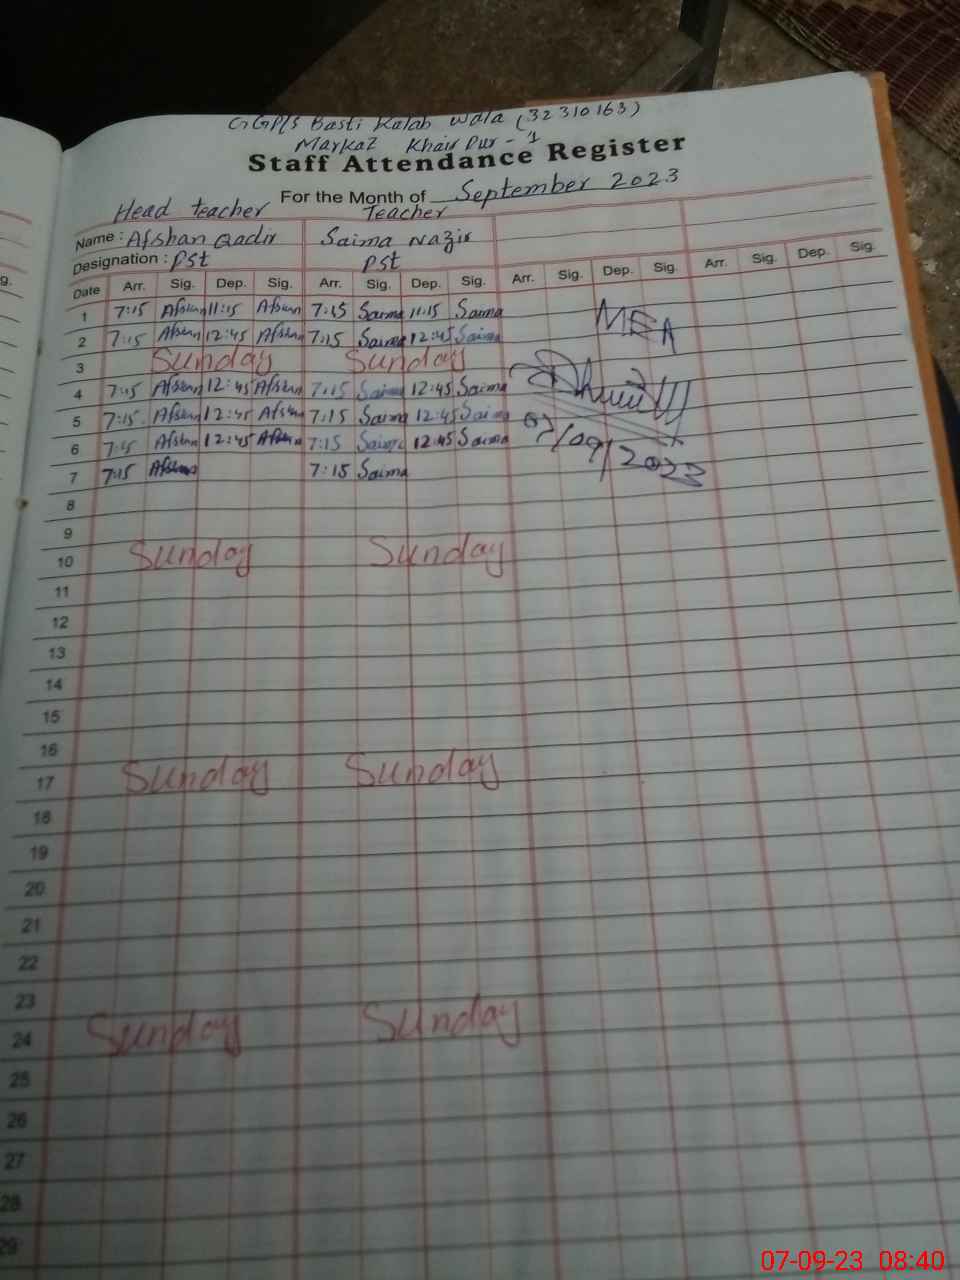 GGP/S Basti Kalab Wala (32310163)
Markaz Khair Pur - 1
Staff Attendance Register
For the Month of September 2023
Head teacher Teacher
Name : Afshan Qadir Saima Nazir
Designation : PSt PSt
Date Arr. Sig. Dep. Sig. Arr. Sig. Dep. Sig. Arr. Sig. Dep. Sig. Arr. Sig. Dep. Sig.
1 7:15 Afshan 11:15 Afshan 7:15 Saima 11:15 Saima
MEA
2 7:15 Afshan 12:45 Afshan 7:15 Saima 12:45 Saima
3 Sunday Sunday
4 7:15 Afshan 12:45 Afshan 7:15 Saima 12:45 Saima
5 7:15 Afshan 12:45 Afshan 7:15 Saima 12:45 Saima
07/09/2023
6 7:15 Afshan 12:45 Afshan 7:15 Saima 12:45 Saima
7 7:15 Afshan 7:15 Saima
8
9
10 Sunday Sunday
11
12
13
14
15
16
17 Sunday Sunday
18
19
20
21
22
23
24 Sunday Sunday
25
26
27
28
29
07-09-23 08:40